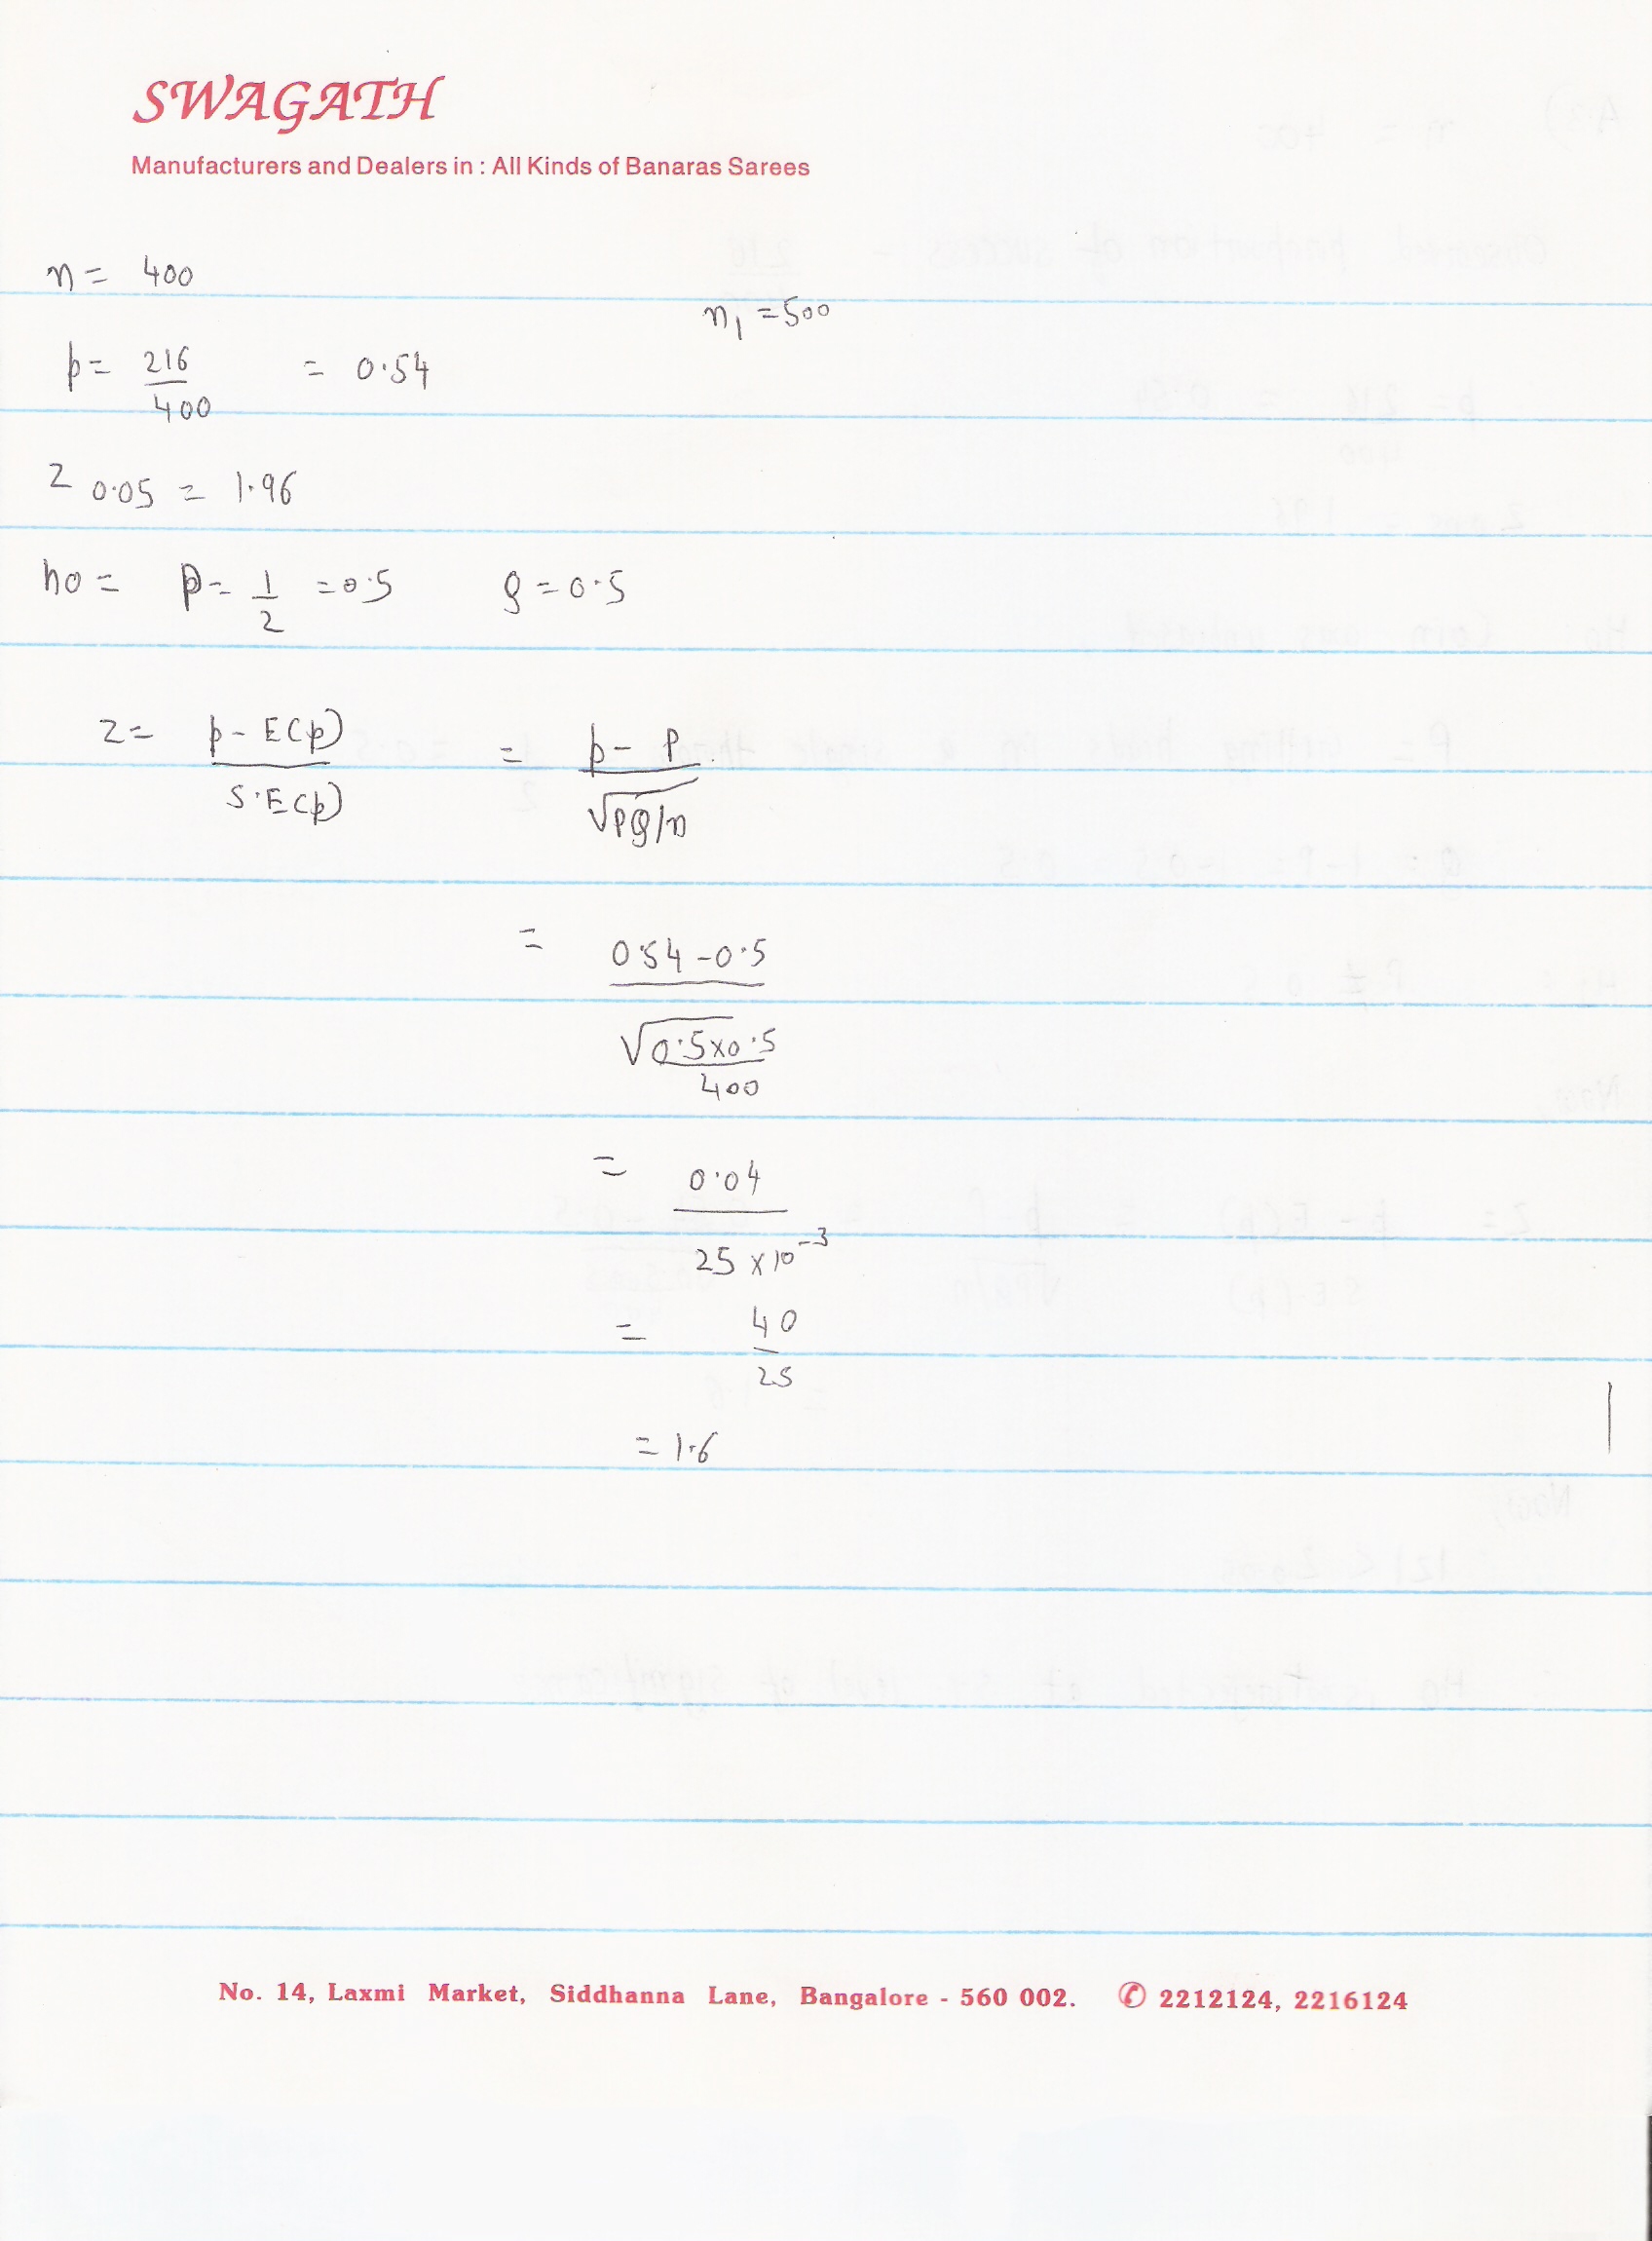 SWAGATH
Manufacturers and Dealers in : All Kinds of Banaras Sarees
n = 400
n1 = 500
p = 216/400 = 0.54
Z 0.05 = 1.96
ho = p = 1/2 = 0.5 Q = 0.5
Z = p - E(p) / S.E(p) = p - P / √PQ/n
= 0.54 - 0.5 / √0.5x0.5/400
= 0.04 / 25 x 10^-3
= 40/25
= 1.6
No. 14, Laxmi Market, Siddhanna Lane, Bangalore - 560 002. ✆ 2212124, 2216124